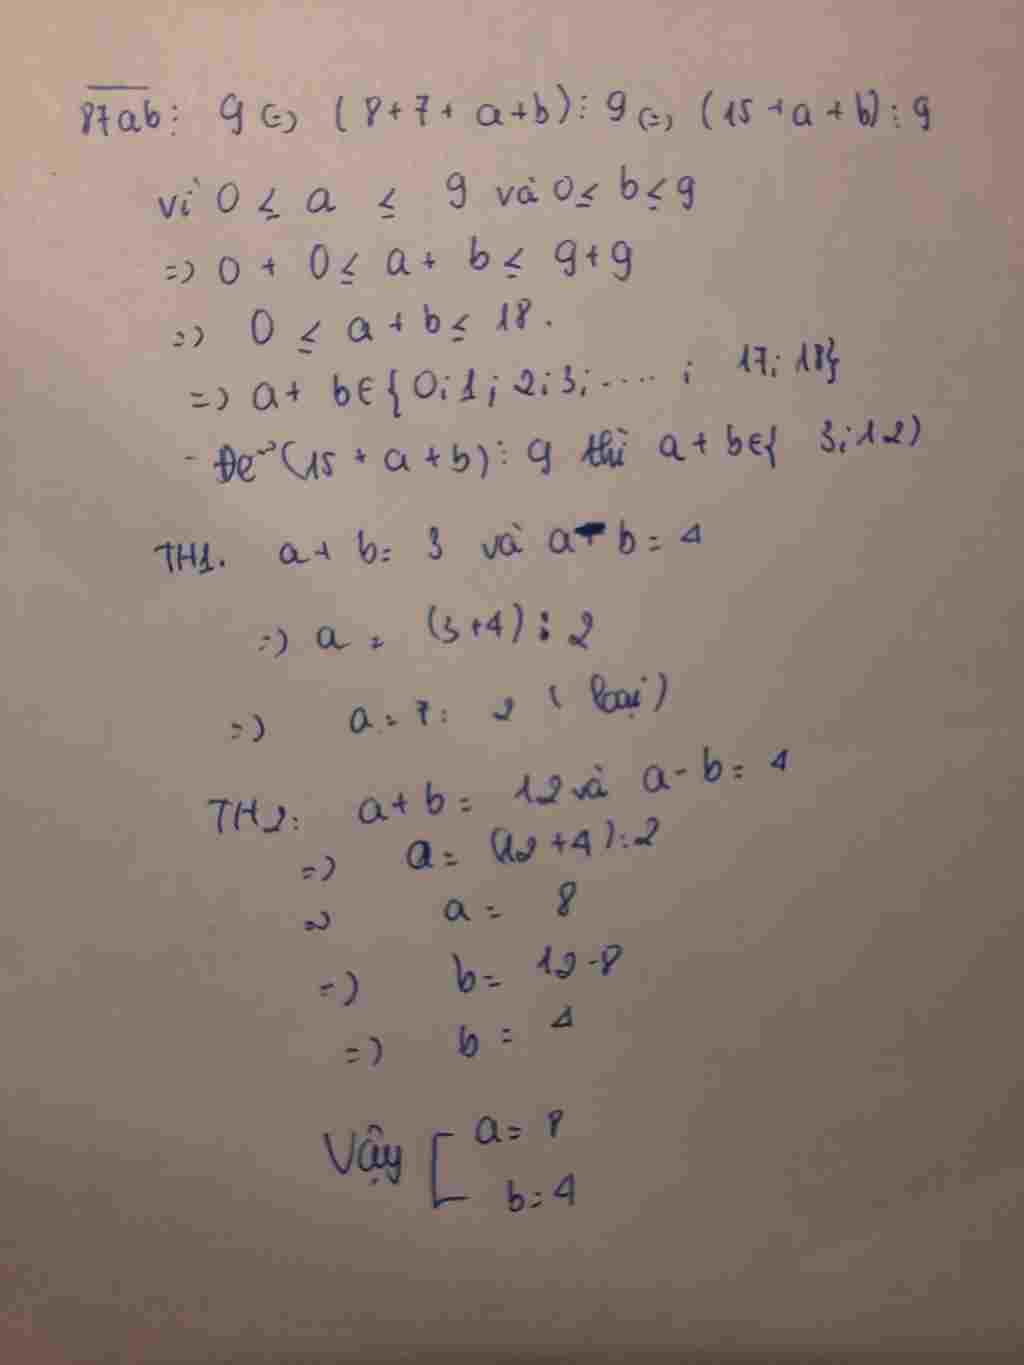 87ab ⋮ 9 (=) (8+7+a+b) ⋮ 9 (=) (15+a+b) ⋮ 9
vì 0 ≤ a ≤ 9 và 0 ≤ b ≤ 9
=) 0 + 0 ≤ a + b ≤ 9+9
=) 0 ≤ a + b ≤ 18.
=) a + b ∈ { 0; 1; 2; 3; .... ; 17; 18}
- Để (15 + a + b) ⋮ 9 thì a + b ∈ { 3; 12)
TH1. a + b = 3 và a - b = 4
=) a = (3+4) : 2
=) a = 7 : 2 ( loại )
TH2: a + b = 12 và a - b = 4
=) a = (12 + 4) : 2
a = 8
=) b = 12 - 8
=) b = 4
Vậy [ a = 8
b = 4